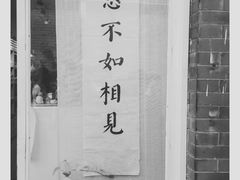 不如相見